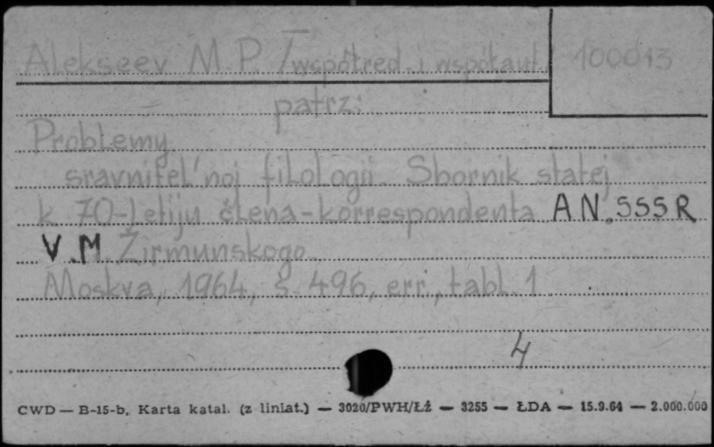 Alekseev M.P. /współred. i współaut./ 100013
patrz:
Problemy
sravnitel'noj filologii. Sbornik statej
k 70-letiju člena-korrespondenta AN SSSR
V.M. Žirmunskogo.
Moskva, 1964, s. 496, err., tabl. 1
4
CWD — B-15-b, Karta katal. (z liniat.) — 3020/PWH/Łż — 3255 — ŁDA — 15.9.64 — 2.000.000